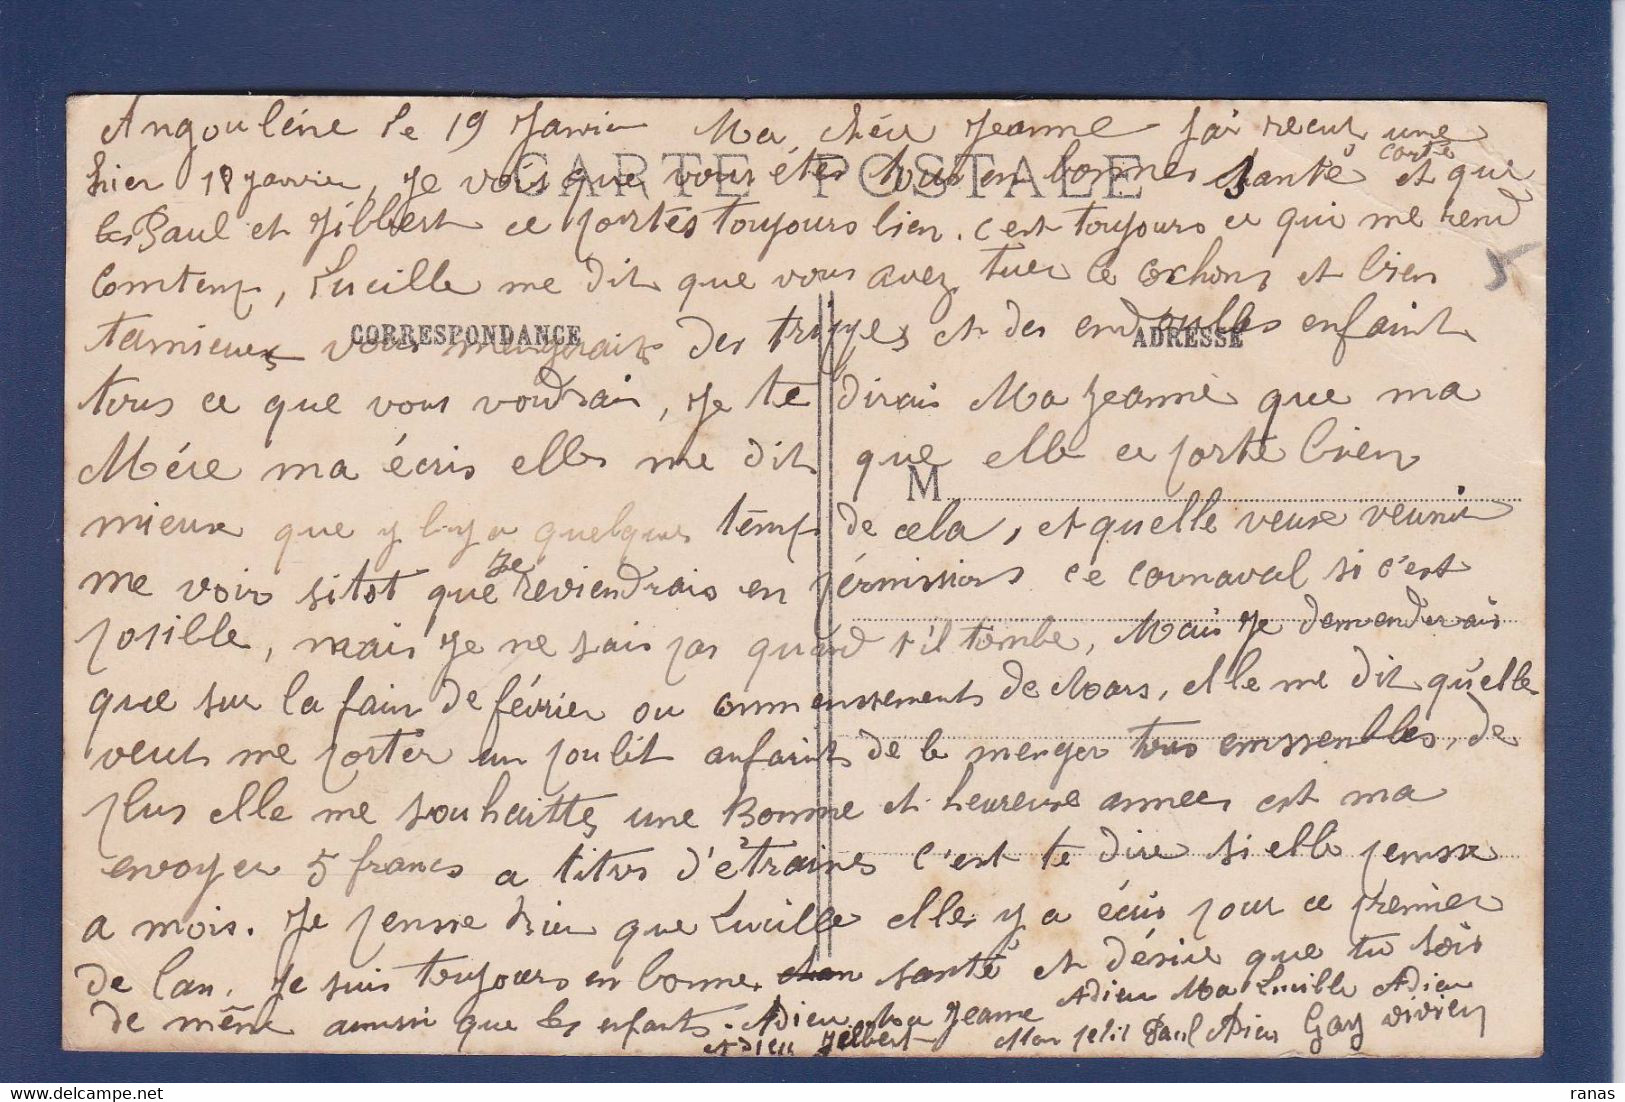 Angouléne le 19 Janvier Ma chére Jeanne J'ai recut une carte
CARTE POSTALE
hier 18 janvier, Je vois que vous étes tous en bonnes santé et que
les Paul et Jilbert ce portes toujours bien. c'est toujours ce qui me rend
comtent, Lucille me dit que vous avez tuer le cochons et bien
CORRESPONDANCE
ADRESSE
tamieux vous mengerais des trippes et des endouilles enfaint
tous ce que vous voudrais, Je te dirais Ma Jeanne que ma
Mére ma écris elles me dit que elle ce porte bien
M
mieux que y l y a quelques temps de cela, et quelle veux veunir
me voir sitot que Je reviendrais en pérmissions ce carnaval si c'est
posible, mais Je ne sais pas quand s'il tombe, Mais Je demenderais
que sur la fain de février ou commenssements de Mars, elle me dit qu'elle
veut me porter un poulit anfaint de le menger tous emssembles, de
plus elle me souhaittes une Bonne et heureuse annees est ma
envoyer 5 francs a titres d'étraines c'est te dire si elle pensse
a mois. Je pensse bien que Lucille elles y a écris pour ce premier
de l'an. Je suis toujours en bonne santé et désire que tu sois
de même aumssi que les enfants. Adieu Ma Jeanne Adieu Ma Lucille Adieu
et Adieu Jilbert Mon petit Paul Adieu Gay vivien
5
ranas